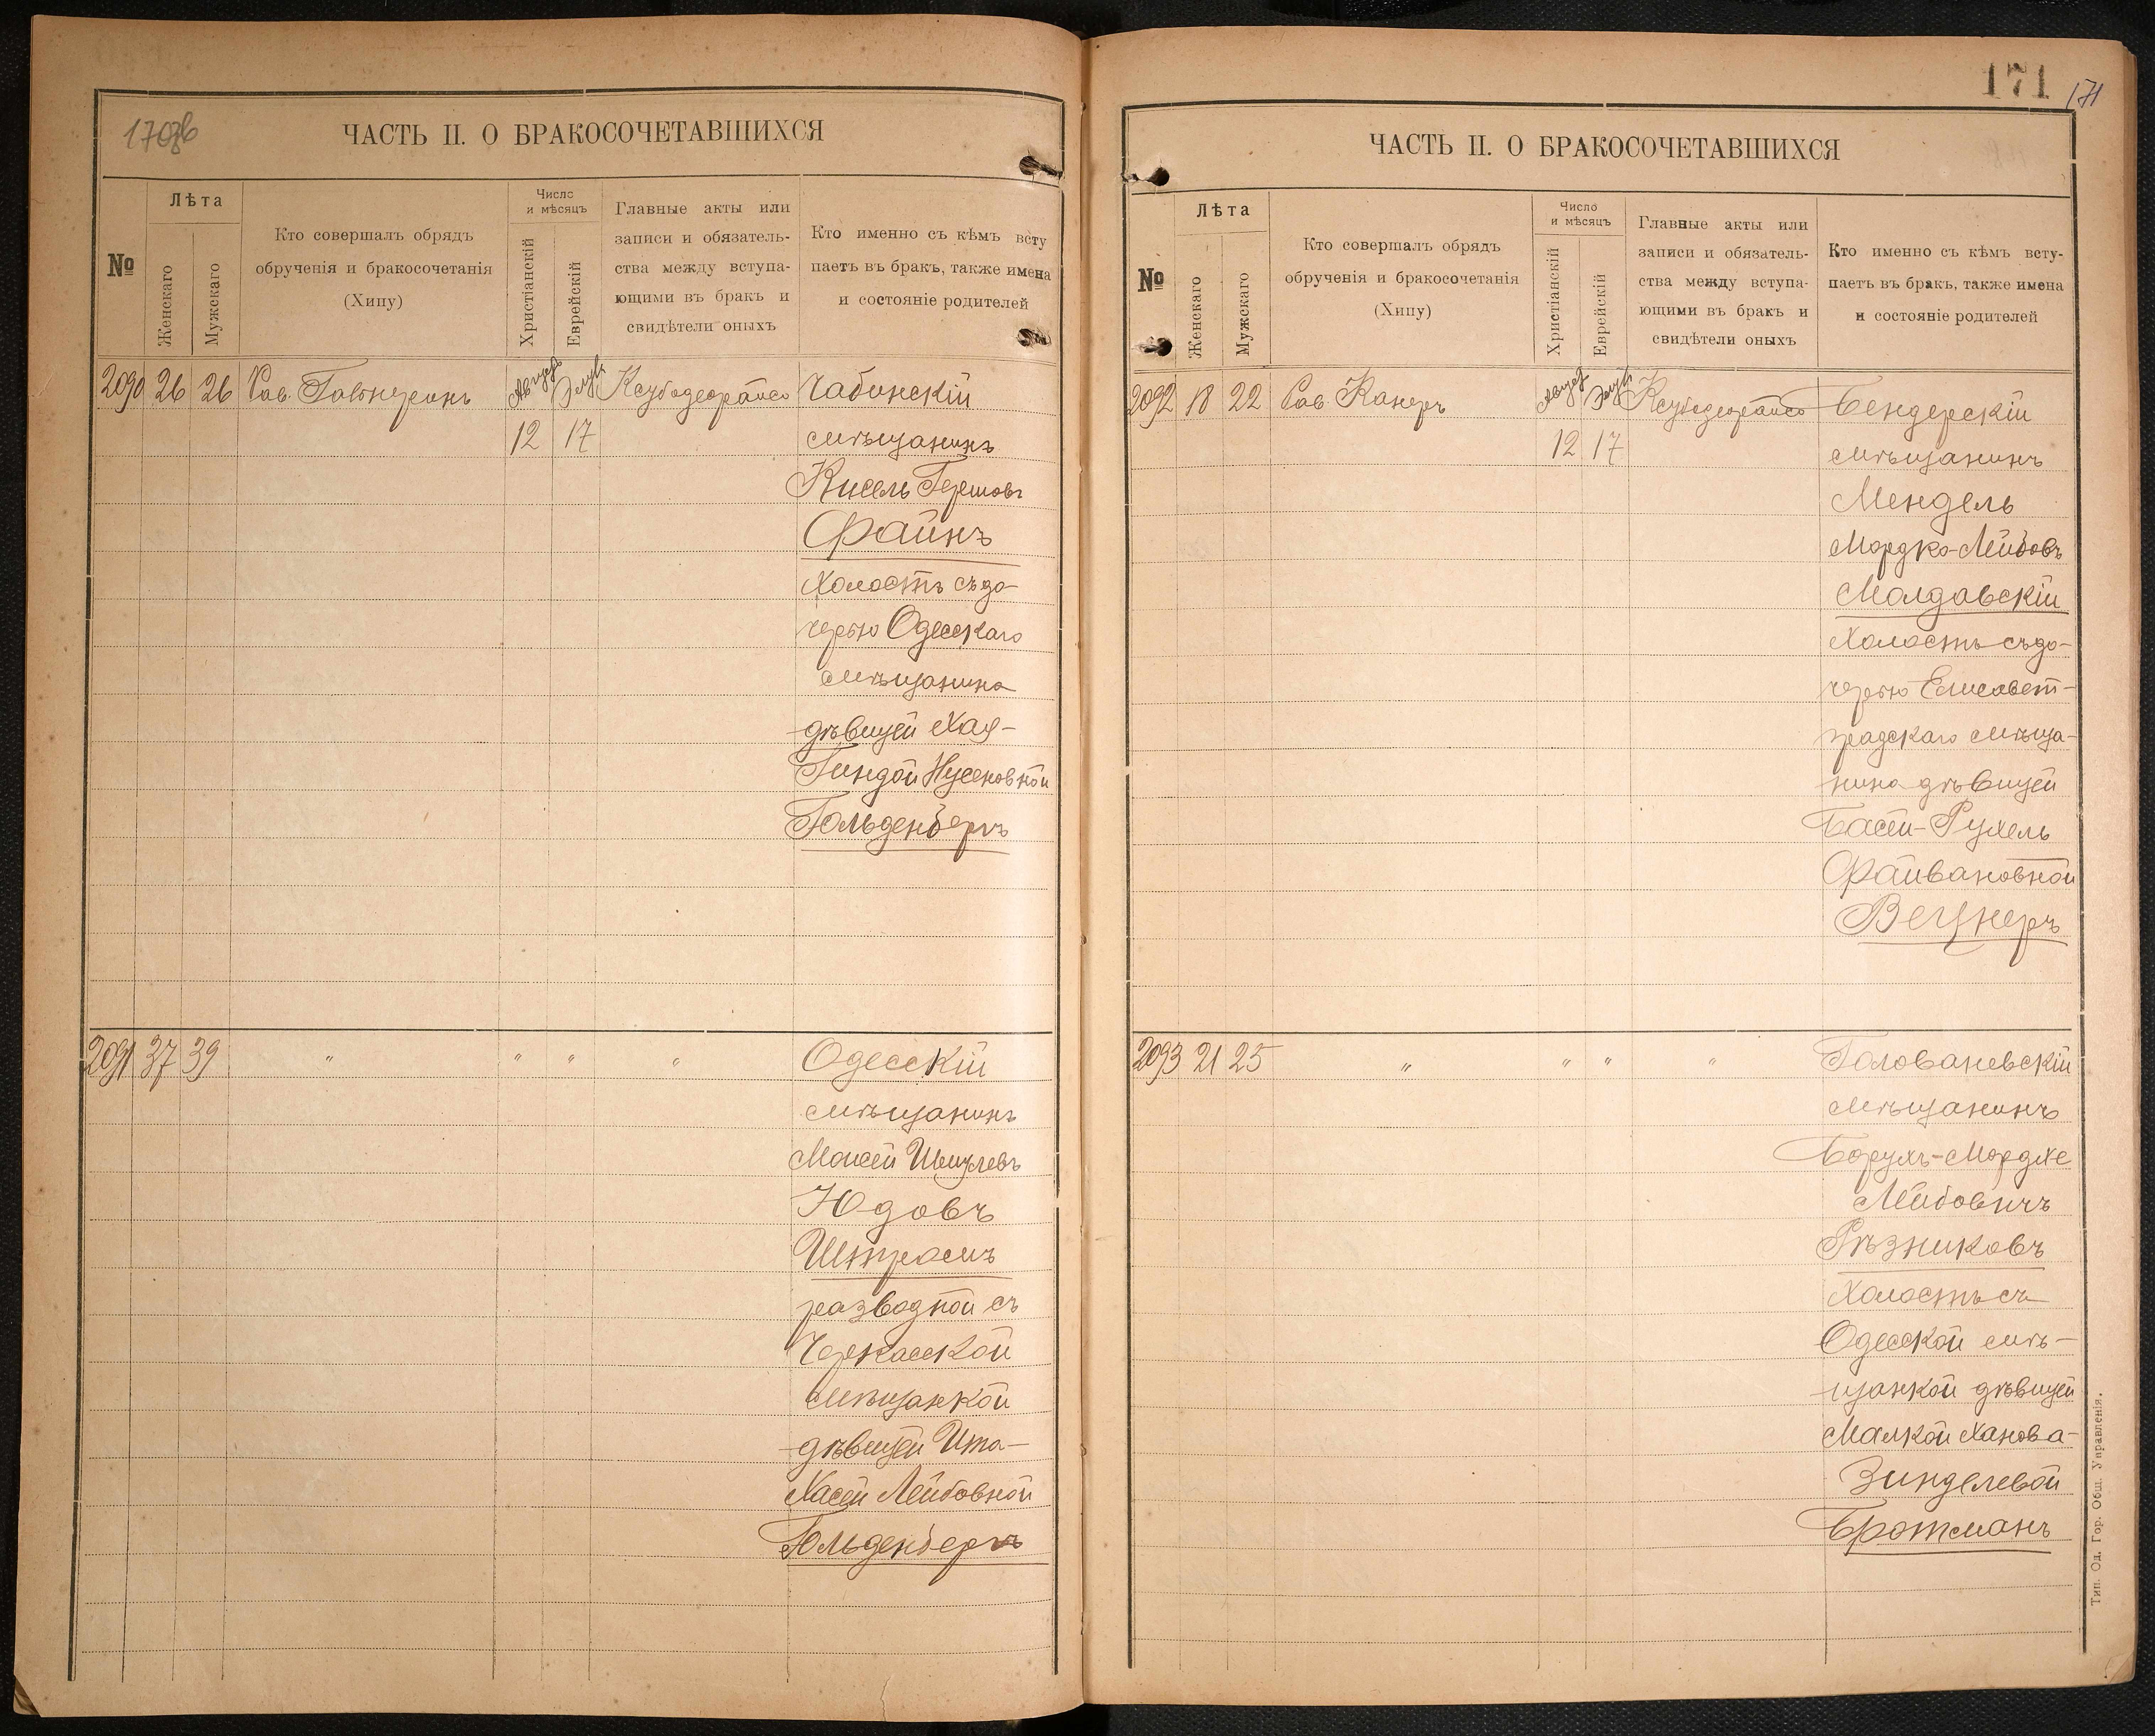 ЧАСТЬ II. О БРАКОСОЧЕТАВШИХСЯ
№
Лѣта
Женскаго
Мужскаго
Кто совершалъ обрядъ
обрученія и бракосочетанія
(Хипу)
Число
и мѣсяцъ
Христіанскій
Еврейскій
Главные акты или
записи и обязатель-
ства между вступа-
ющими въ бракъ и
свидѣтели оныхъ
Кто именно съ кѣмъ всту
паетъ въ бракъ, также имена
и состояніе родителей
2090 26 26 Рав. Август Элул Чабинскій
12 17 мѣщанинъ
Кисель Гершовъ
Файнъ
Холостъ съ до-
черью Одесскаго
мѣщанина
дѣвицей Хая-
Гиндой Нусеновной
Гольденбергъ
2091 37 39 " " " " Одесскій
мѣщанинъ
Моисей Шмулевъ
Юдовъ
Штромъ
разводной съ
Черкасской
мѣщанкой
дѣвицей Ита-
Хасей Лейбовной
Гольденбергъ
171
171
ЧАСТЬ II. О БРАКОСОЧЕТАВШИХСЯ
№
Лѣта
Женскаго
Мужскаго
Кто совершалъ обрядъ
обрученія и бракосочетанія
(Хипу)
Число
и мѣсяцъ
Христіанскій
Еврейскій
Главные акты или
записи и обязатель-
ства между вступа-
ющими въ бракъ и
свидѣтели оныхъ
Кто именно съ кѣмъ всту-
паетъ въ бракъ, также имена
и состояніе родителей
2092 18 22 Рав Канеръ Август Элул Бендерскій
12 17 мѣщанинъ
Мендель
Мордко-Лейбовъ
Молдавскій
Холостъ съ до-
черью Елисавет-
градскаго мѣща-
нина дѣвицей
Басей-Рухель
Файвановной
Вецнеръ
2093 21 25 " " " " Голованевскій
мѣщанинъ
Борухъ-Мордхе
Лейбовичъ
Рѣзниковъ
Холостъ съ
Одесской мѣ-
щанкой дѣвицей
Малкой Ханова-
Зинделевой
Бротманъ
Тип. Од. Гор. Общ. Управленія.